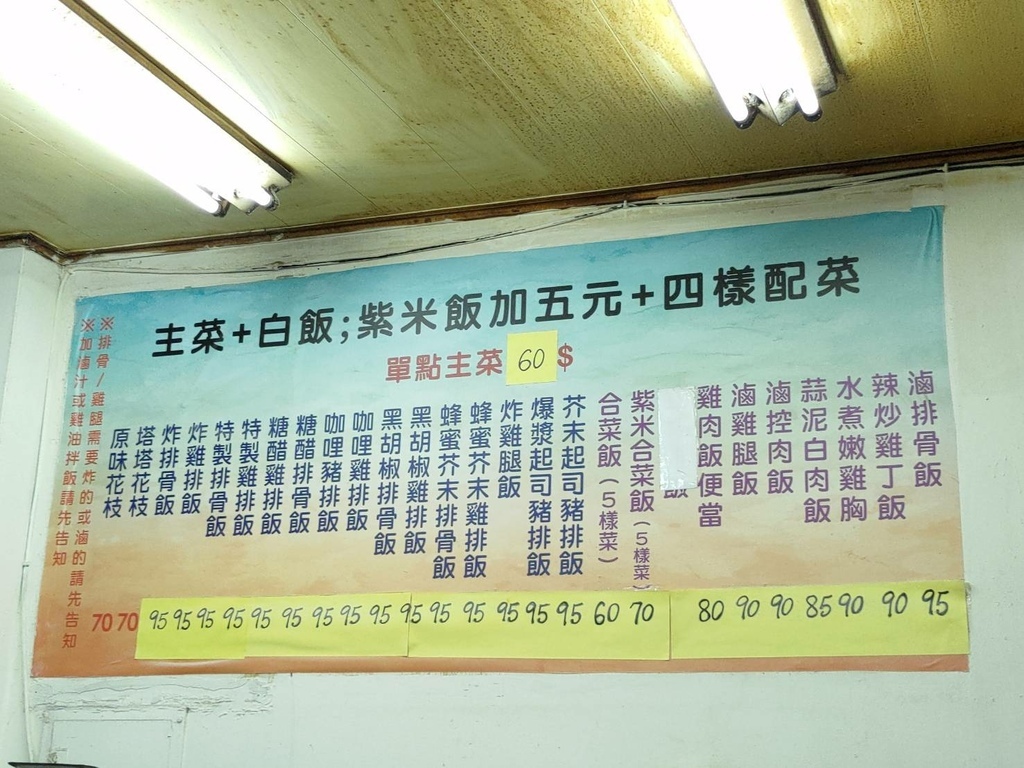 主菜+白飯;紫米飯加五元+四樣配菜
單點主菜 60 $
滷排骨飯 95
辣炒雞丁飯 90
水煮嫩雞胸 90
蒜泥白肉飯 85
滷控肉飯 90
滷雞腿飯 90
雞肉飯便當 80
飯
紫米合菜飯(5樣菜) 70
合菜飯(5樣菜) 60
芥末起司豬排飯 95
爆漿起司豬排飯 95
炸雞腿飯 95
蜂蜜芥末雞排飯 95
蜂蜜芥末排骨飯 95
黑胡椒雞排飯 95
黑胡椒排骨飯 95
咖哩雞排飯 95
咖哩豬排飯 95
糖醋排骨飯 95
糖醋雞排飯 95
特製雞排飯 95
特製排骨飯 95
炸雞排飯 95
炸排骨飯 95
塔塔花枝 70
原味花枝 70
※排骨/雞腿需要炸的或滷的請先告知
※加滷汁或雞油拌飯請先告知